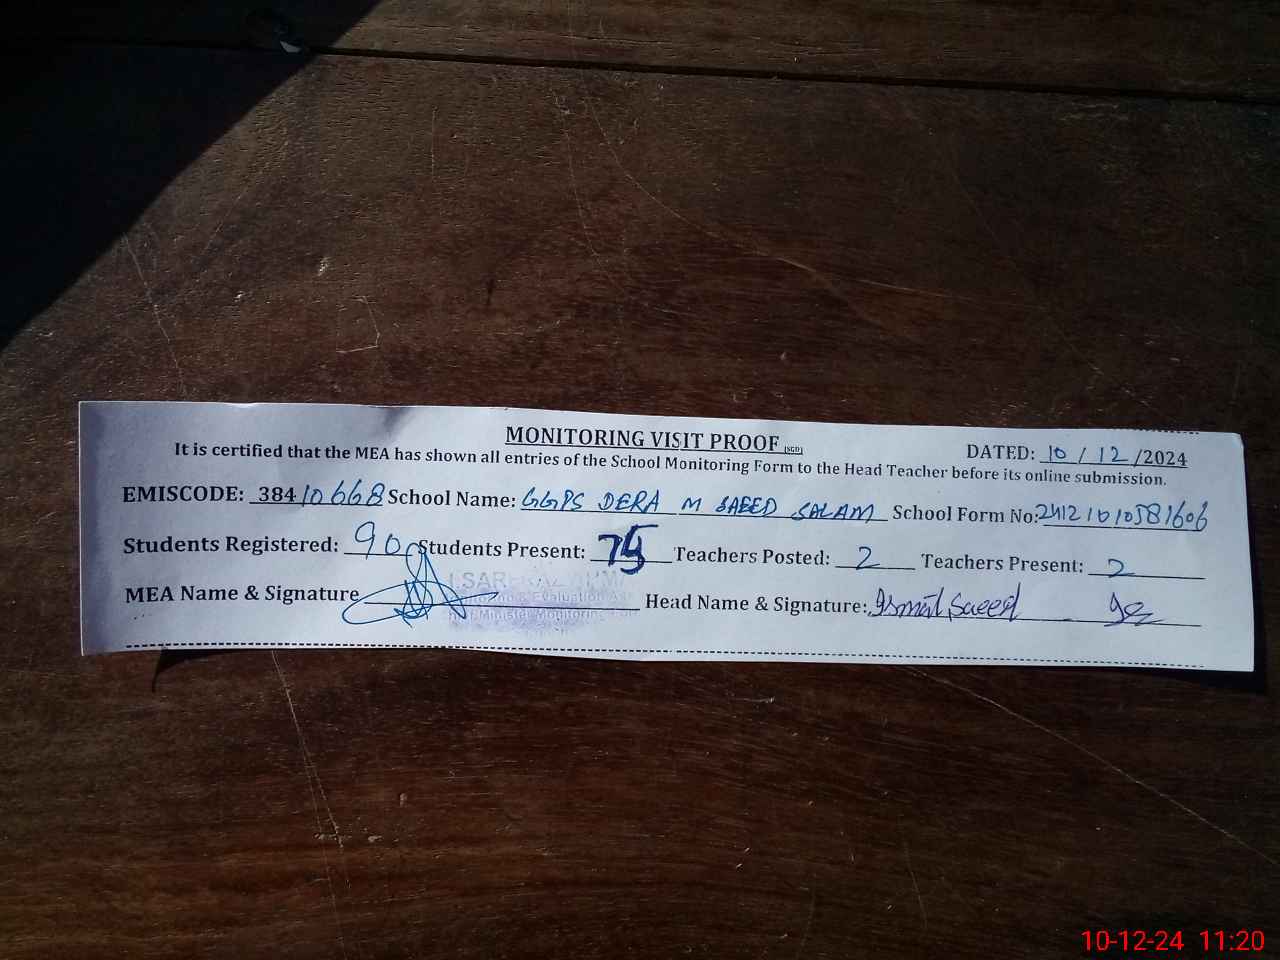 MONITORING VISIT PROOF (SGD)
DATED: 10/12/2024
It is certified that the MEA has shown all entries of the School Monitoring Form to the Head Teacher before its online submission.
EMISCODE: 38410668 School Name: GGPS DERA M SAEED SALAM School Form No: 2412101058 1606
Students Registered: 90 Students Present: 75 Teachers Posted: 2 Teachers Present: 2
MEA Name & Signature Head Name & Signature: Saeed
& Evaluation
Minister Monitoring
10-12-24 11:20